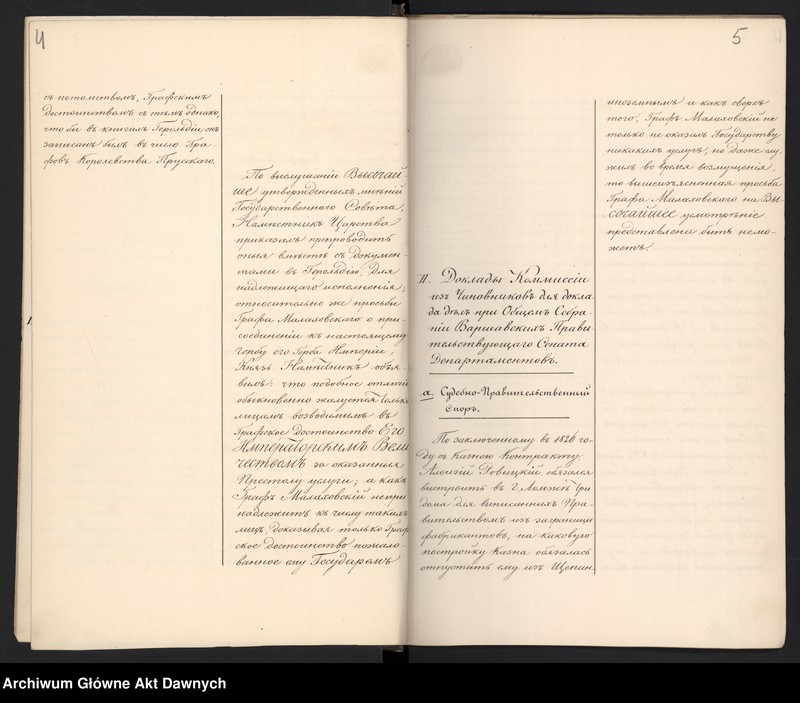 4
съ потомствомъ, Графскимъ
достоинствомъ съ тѣмъ однако,
что бы въ книгахъ Герольдіи онъ
записанъ былъ въ число Гра-
фовъ Королевства Прусскаго.
По выслушаніи Высочай-
ше утвержденныхъ мнѣній
Государственнаго Совѣта,
Намѣстникъ Царства
приказалъ препроводить
оныя вмѣстѣ съ докумен-
тами въ Герольдію, для
надлежащаго исполненія;
относительно же просьбы
Графа Малаховскаго о при-
соединеніи къ настоящему
гербу его Герба Имперіи,
Князь Намѣстникъ объя-
вилъ: что подобное отличіе
обыкновенно жалуется только
лицамъ возводимымъ въ
Графское Достоинство Его
Императорскимъ Вели-
чествомъ за оказанныя
Престолу услуги; а какъ
Графъ Малаховскій непри-
надлежитъ къ числу такихъ
лицъ, доказывая только Граф-
ское достоинство пожало-
ванное ему Государемъ
5
иноземнымъ и какъ сверхъ
того, Графъ Малаховскій не
только не оказалъ Государству
никакихъ услугъ, но даже слу-
жилъ во время возмущенія,
то вышеизъясненная просьба
Графа Малаховскаго на Вы-
сочайшее усмотрѣніе
представлена быть немо-
жетъ.
II. Доклады Коммиссіи
изъ Чиновниковъ для докла
да дѣлъ при Общемъ Собра-
ніи Варшавскихъ Прави
тельствующаго Сената
Департаментовъ.
а. Судебно-Правительственный
Споръ.
По заключенному въ 1826 го-
ду съ Казною Контракту,
Алоизій Ровицкій обязался
выстроить въ г. Ломжѣ три
дома для выписанныхъ Пра-
вительствомъ изъ заграницы
фабрикантовъ, на каковую
постройку Казна обязалась
отпустить ему изъ Щепан
Archiwum Główne Akt Dawnych